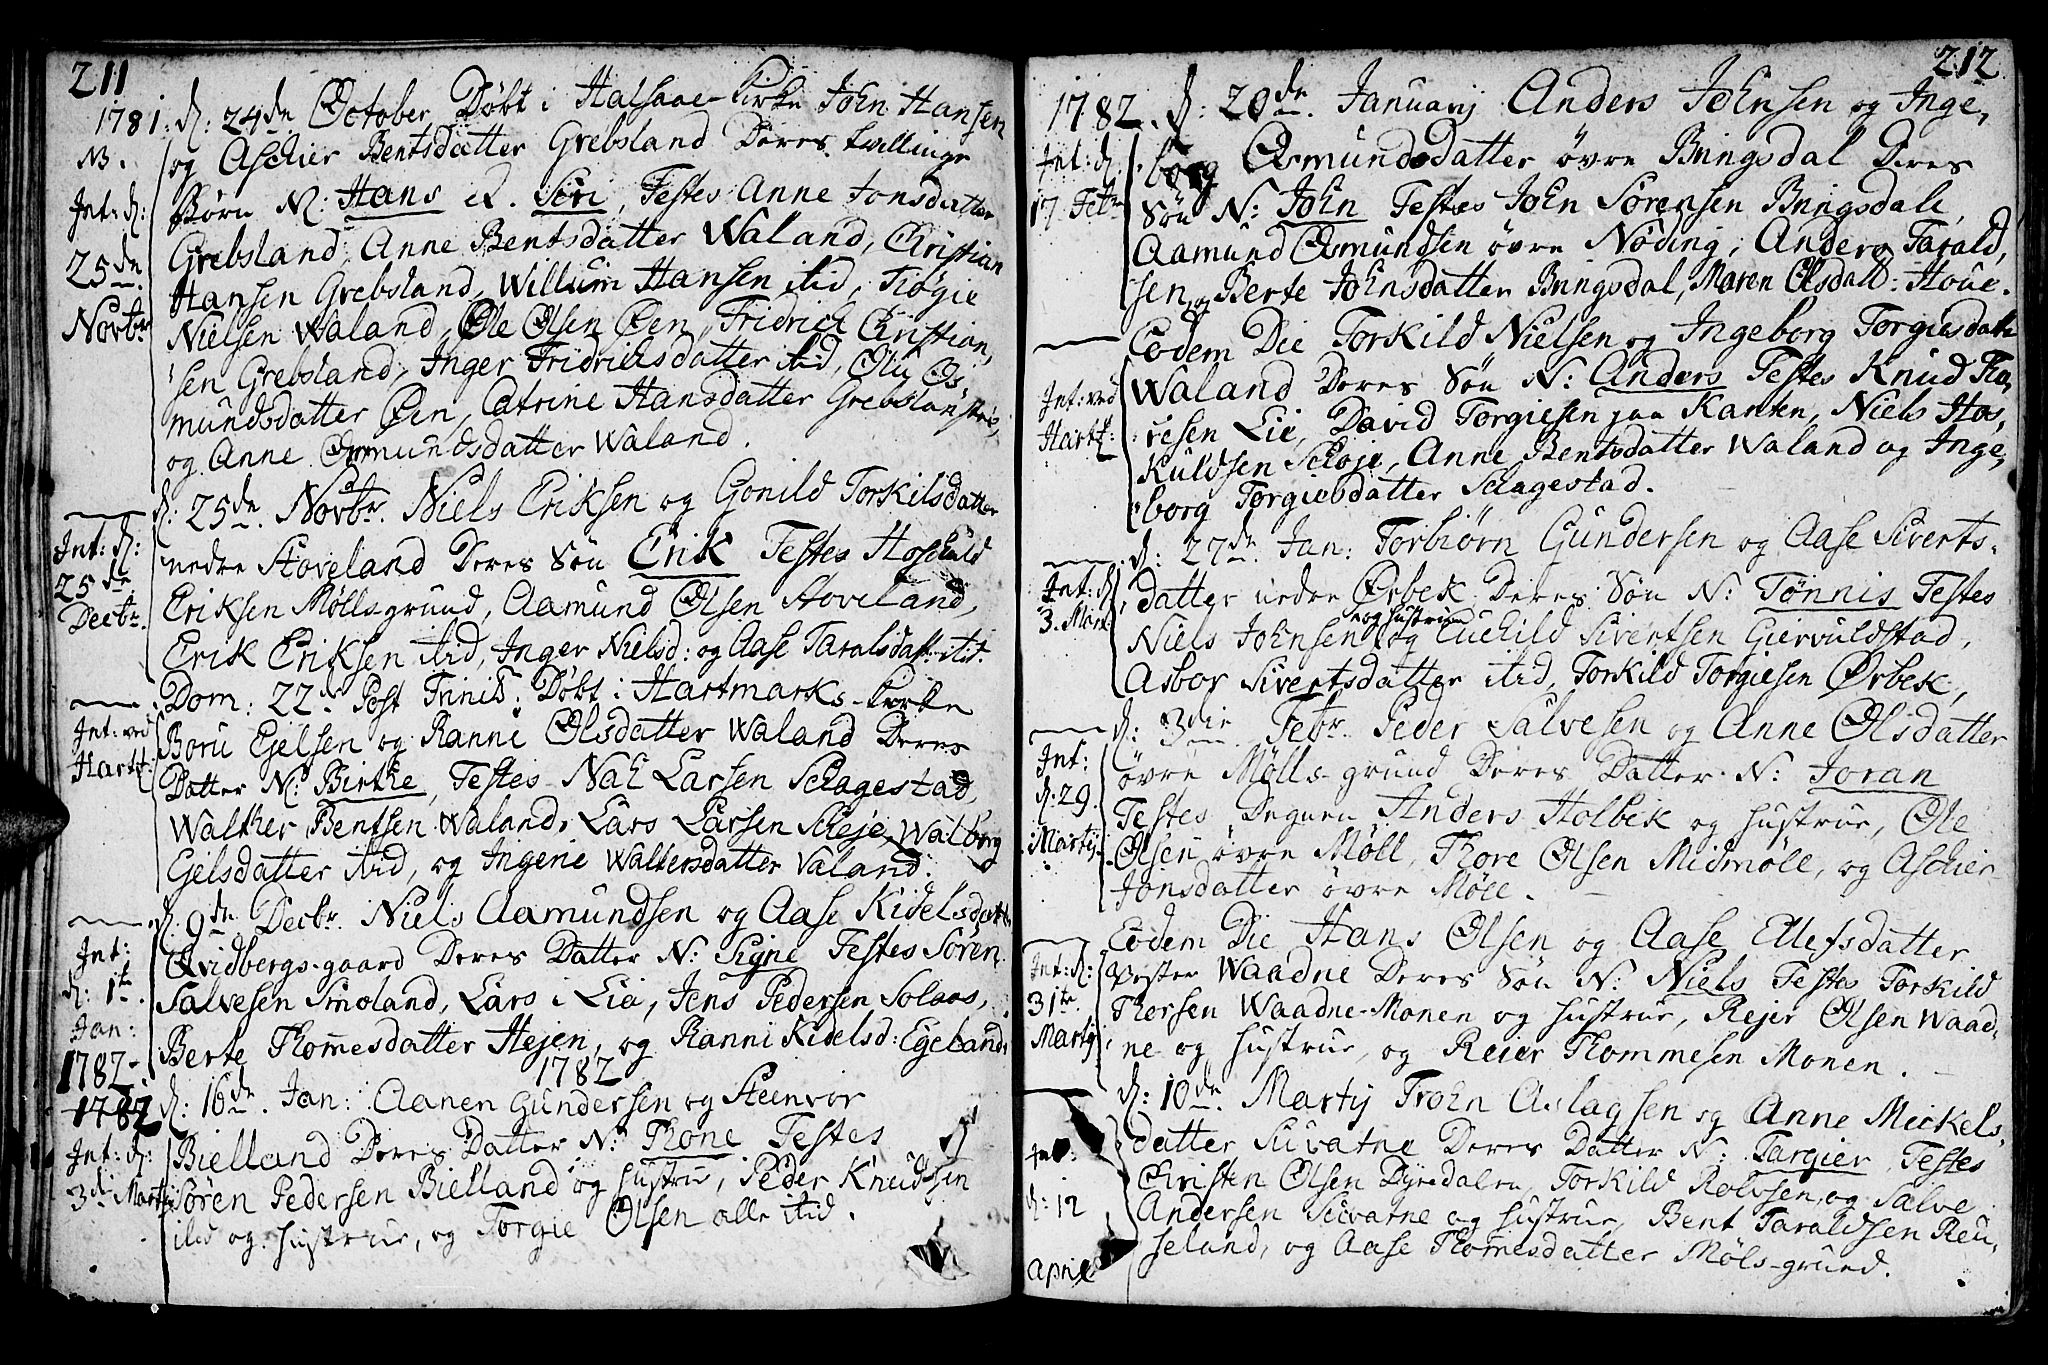 211
1781. d: 24de October Døbt i Halsaae-Kirke John Hansen
NB.
og Aschier Bentsdatter Grebsland Deres tvillinge
Int: d:
Børn N: Hans et. Siri, Testes Anne Jonsdatter
Grebsland, Anne Bentsdatter Waland, Christian
25de
Hansen Grebsland, Willum Hansen itid, Tiøgie
Novbr
Nielsen Waland, Ole Olsen Øen, Fridrich Christian,
sen Grebsland, Inger Fridrichsdatter itid, Oliv Os,
mundsdatter Øen, Catrine Hansdatter Grebslandstrøe,
og Anne Ormundsdatter Waland.
d: 25de. Novbr. Niels Eriksen og Gonild Torkilsdatter
Int: d:
nedre Stoveland Deres Søn Erik Testes Hoschuld
25de
Eriksen Møllsgrund, Aamund Olsen Stoveland,
Decbr.
Erik Eriksen itid, Inger Nielsd: og Aase Taralsdatt: itid.
Dom: 22d Post Trinit: Døbt i Hartmarks-Kirke
Int: ved
Boru Egelsen og Ranni Olsdatter Waland Deres
Hartk:
Datter N: Birthe, Testes Nah Larsen Schagestad,
Walther Bentsen Waland, Lars Larsen Scheje, Walborg
Egelsdatter itid, og Ingerie Waltersdatter Valand.
d: 9de Decbr. Niels Aamundsen og Aase Kidelsdatter
Int:
Qvidbergs-gaard Deres Datter N: Signe Testes Sören
d: 1te
Salvesen Smoland, Lars i Lie, Jens Pedersen Solaas,
Jan:
Berte Thomesdatter Hejen, og Ranni Kidelsd: Egeland.
1782
1782
1782
d: 16de. Jan: Aanen Gundersen og Steenvor
Int: d:
Bielland Deres Datter N: Thone Testes
3di Martij
Sören Pedersen Bielland og Hustrue, Peder Knudsen
itid og Hustrue, og Torgie Olsen alle itid.
212
1782. d: 20de. Januarij Anders Johnsen og Inge,
Int: d:
borg Osmundsdatter övre Bringsdal Deres
17. Febr
Søn N: John Testes John Sörensen Bringsdale,
Aamund Osmundsen övre Nöding, Anders Tarald,
sen, og Berte Johnsdatter Bringsdal, Maren Olsdatt: Houe.
Eodem Die Torkild Nielsen og Ingeborg Torgiusdatter
Int: ved
Waland Deres Søn N: Anders Testes Knud Tha,
Hartk:
resen Lie, David Torgiesen paa Kanten, Niels Hos,
kuldsen Scloje, Anne Bentsdatter Waland og Inge,
borg Torgiesdatter Schagestad.
d: 27de. Jan: Torbiørn Gundersen og Aase Siverts-
Int: d,
datter nedre Ørbek Deres Søn N: Tönnis Testes
3. Mart
og Hustrue
Niels Johnsen og Euchild Sivertsen Giervuldstad,
Asbor Sivertsdatter itid, Torkild Torgiesen Ørbek,
d: 3die Febr. Peder Salvesen og Anne Olsdatter
Int:
övre Mölls-grund Deres Datter N: Joran
d: 29
Testes Degnen Anders Holbek og Hustrue, Ole
Martij
Olsen övre Möll, Thore Olsen Midmöll, og Aschier
Jonsdatter övre Möll.
Eodem Die Hans Olsen og Aase Ellefsdatter
Int: d:
Vester Waadne Deres Søn N: Niels Testes Torkild
31te
Thorsen Waadne-Monen og Hustrue, Rejer Olsen Waad-
Martij
ne og Hustrue, og Reier Thommesen Monen.
d: 10de. Martij Trohn Aslagsen og Anne Mickels-
Int:
datter Suvatne Deres Datter N: Targier Testes
Christen Olsen Dyredalen, Torkild Rolvsen, og Salve
d: 12
Andersen Suvatne og Hustrue, Bent Taraldsen Reu-
April
seland, og Aase Thomesdatter Möls-grund.